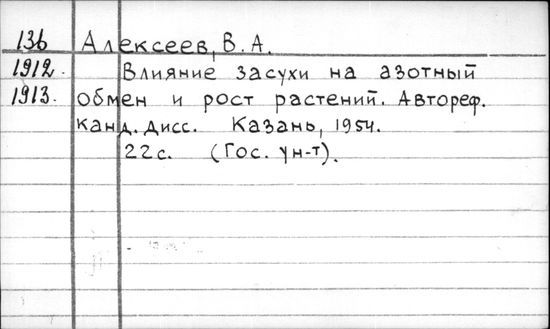 136 Алексеев, В. А.
1912. Влияние засухи на азотный
1913. обмен и рост растений. Автореф.
канд. дисс. Казань, 1954.
22 с. (Гос. ун-т).